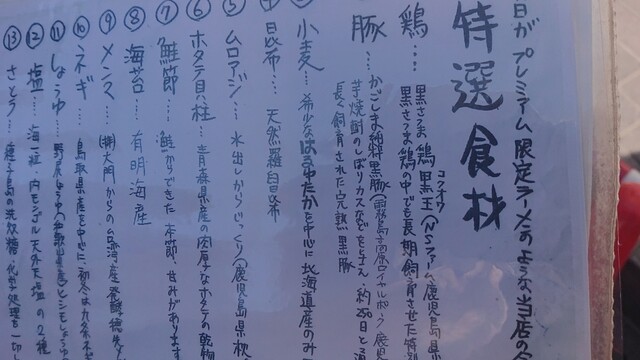 日がプレミアム限定ラーメンのような当店の
特選食材
鶏… 黒さつま鶏 黒王(コクオウ)(NSファーム 鹿児島県
黒さつま鶏の中でも長期飼育させた特
豚… かごしま純粋黒豚(霧島高原ロイヤルポーク 鹿児
芋焼酎のしぼりカスなどを与え、約250日と
長く飼育された完熟黒豚
小麦… 希少なはるゆたかを中心に北海道産のみ
昆布… 天然羅臼昆布
⑤ ムロアジ… 水出しからじっくり(鹿児島県枕
⑥ ホタテ貝柱… 青森県産の肉厚なホタテの乾物
⑦ 鮭節… 鮭からできた本節、甘みがあります
⑧ 海苔… 有明海産
⑨ メンマ… (株)大門からの台湾産発酵
⑩ ネギ… 鳥取県産を中心に、初冬は九条ネギ
⑪ しょうゆ… 野尻しょうゆ(和歌山県産)と
⑫ 塩… 海一粒・内モンゴル天外天塩の2種
⑬ さとう… 種子島の洗双糖、化学処理を一切